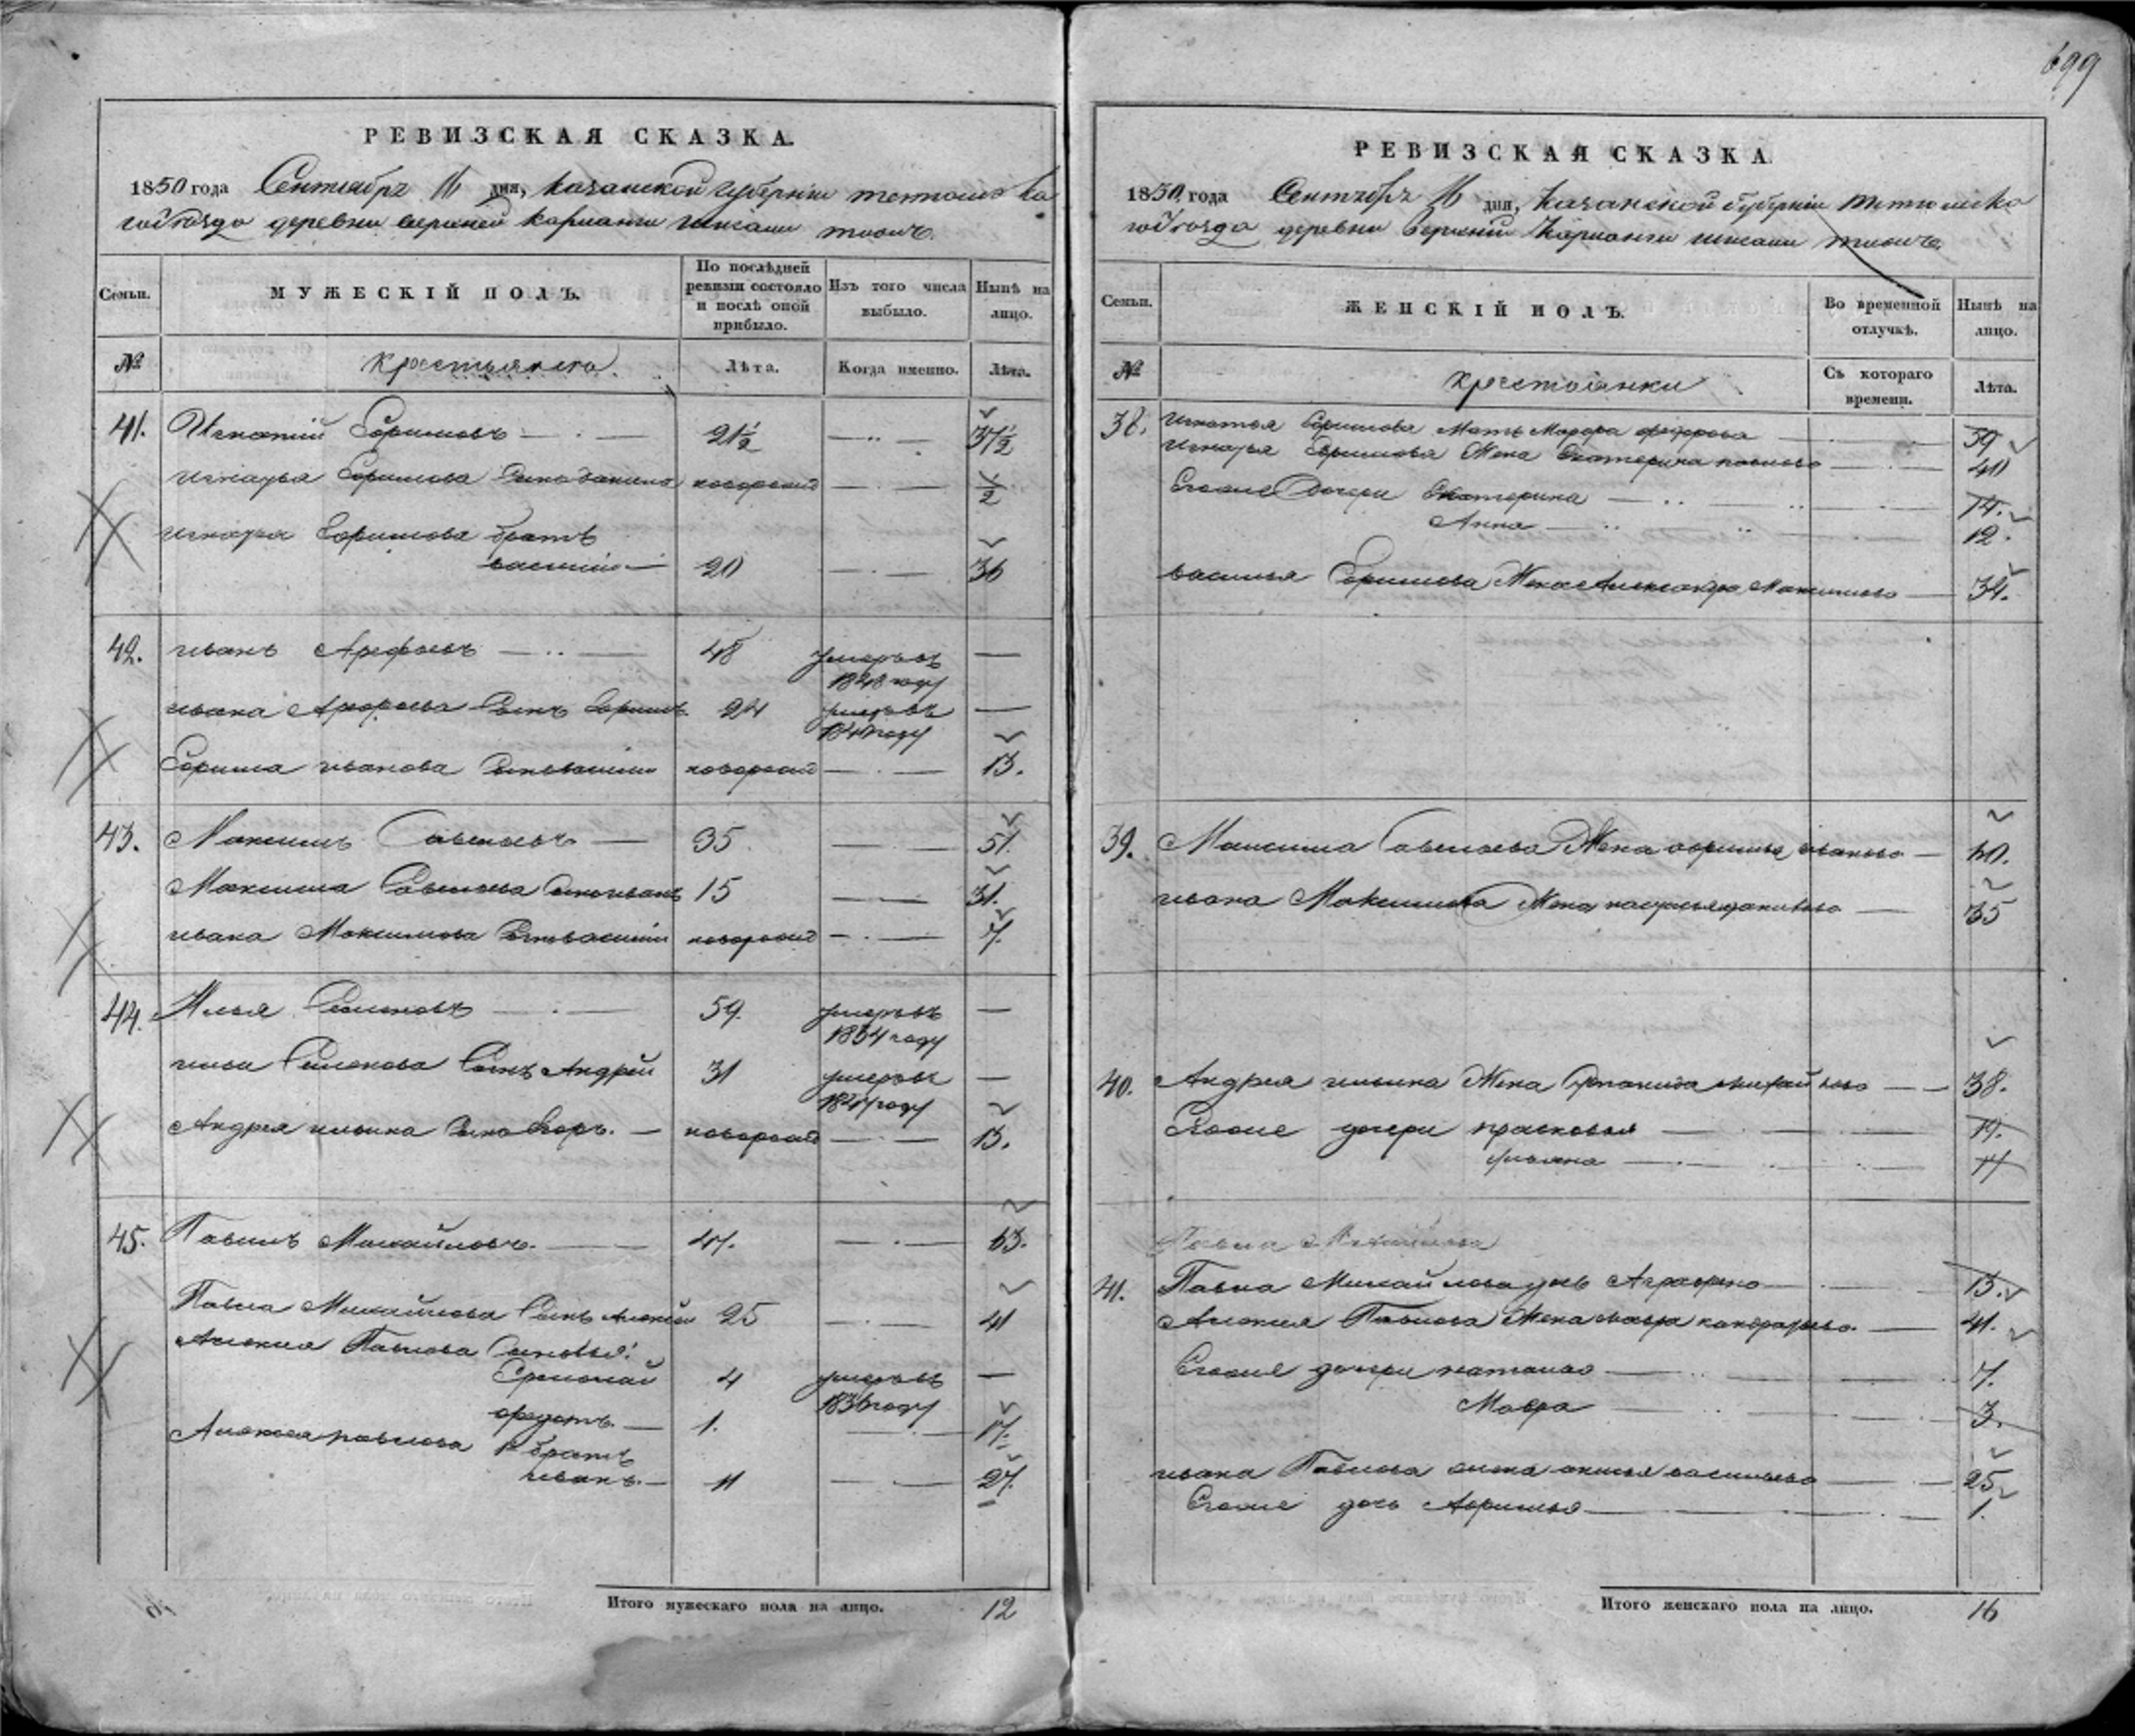 699
РЕВИЗСКАЯ СКАЗКА.
1850 года Сентября 16 дня, Казанской губернии тетюшска
го уезда деревни верхней
Семьи.
МУЖЕСКІЙ ПОЛЪ.
По послѣдней ревизіи состояло и послѣ оной прибыло.
Изъ того числа выбыло.
Нынѣ на лицо.
№
Лѣта.
Когда именно.
Лѣта.
41. Игнатій Ефимовъ 21½ 37½
Игнатья Ефимова новорожд ½
Игнатья Ефимова братъ
василій 20 36
42. иванъ Арефьевъ 48 умеръ въ —
1848 году
ивана Арефьева Сынъ Ефимъ 24 умеръ въ —
году
Ефима иванова Сынъ василій новорожд 13.
43. Максимъ Савельевъ 35 51.
Максима Савельева Сынъ иванъ 15 31.
ивана Максимова Сынъ василій новорожд 7.
44. Илья Семеновъ 59. умеръ въ —
году
ильи Семенова Сынъ Андрей 31 умеръ въ —
году
Андрея ильина Сынъ Егоръ новорожд 13.
45. Павилъ Михайловъ. 47. 63.
Павла Михайлова Сынъ Алексей 25 41
Алексея Павлова Сыновья:
Ермолай 4 умеръ въ —
1836 году
федотъ 1. 17.
Алексея павлова братъ
иванъ. 11 27.
Итого мужескаго пола на лицо. 12
РЕВИЗСКАЯ СКАЗКА.
1850 года Сентября 16 дня, Казанской губернии тетюшска
го уезда деревни верхней
Семьи.
ЖЕНСКІЙ ПОЛЪ.
Во временной отлучкѣ.
Нынѣ на лицо.
№
крестьянки
Съ котораго времени.
Лѣта.
38. Игнатья Ефимова Мать федорова 59
Игнатья Ефимова Жена Екатерина павлова 40
Егоже Дочери Екатерина 14.
Анна 12.
василья Ефимова Жена Александра Максимова 34.
39. Максима Савельева Жена иванова
ивана Максимова Жена настасья данилова 35
40. Андрея ильина Жена михайлова 38.
Егоже дочери прасковья 19.
ульяна
Павла Михайлова
41. Павла Михайлова дочь Аграфена 13.
Алексея Павлова Жена кондратьева 41.
Егоже дочери наталья 7.
Мавра 3.
ивана Павлова жена васильева 25
Егоже дочь 1.
Итого женскаго пола на лицо. 16